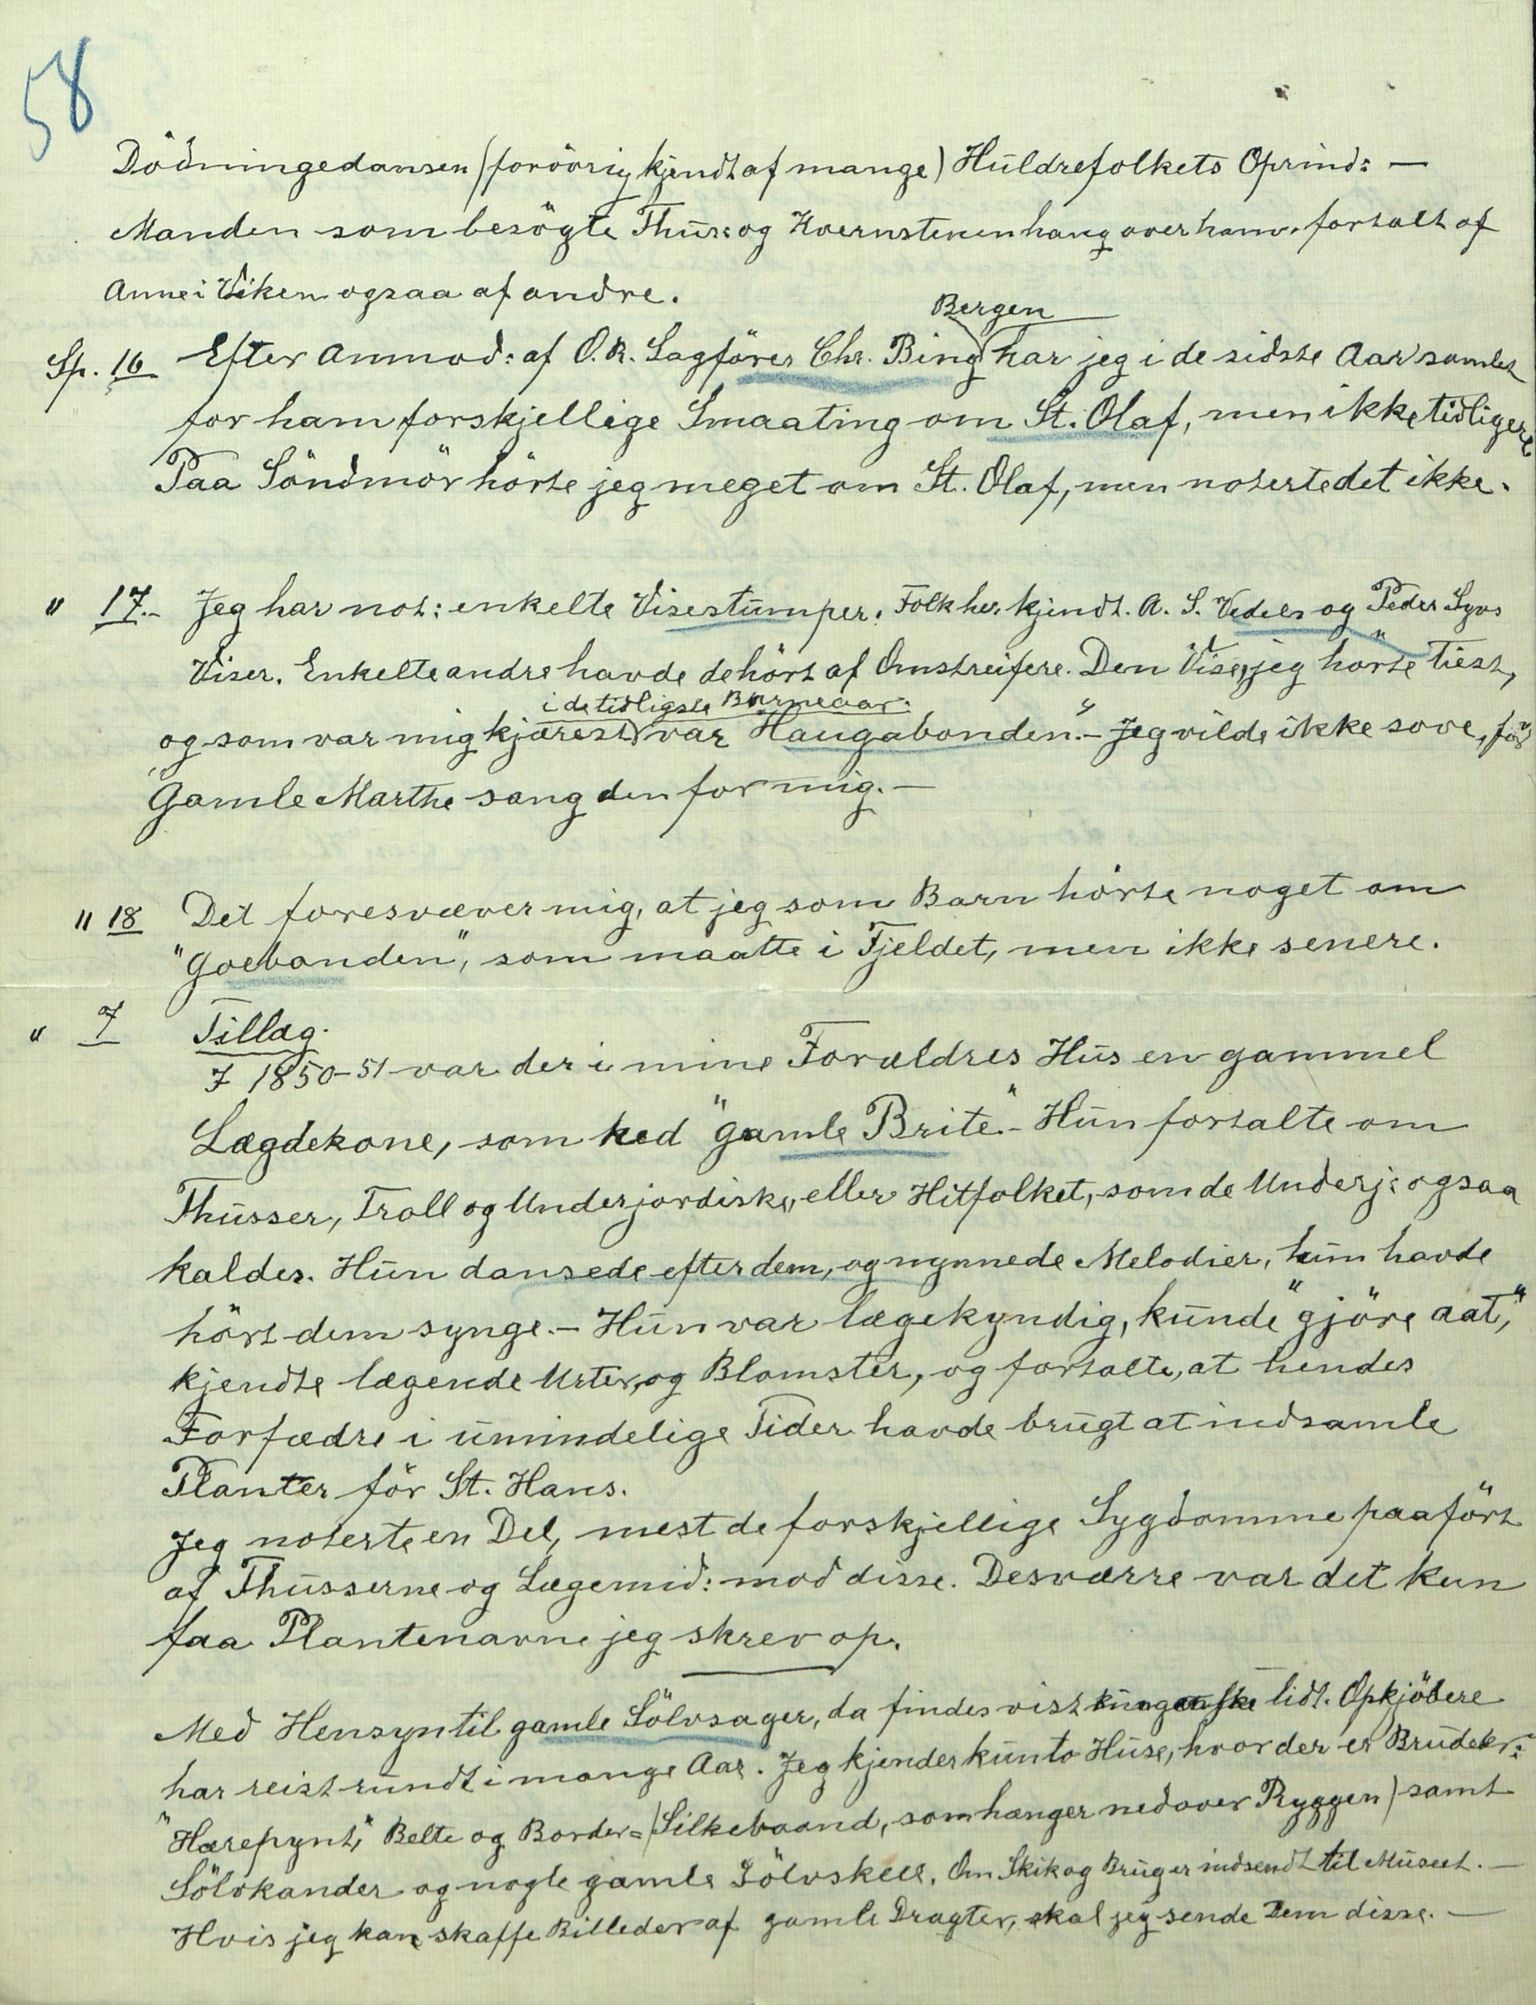 58
Dödningedansen (forövrig kjendt af mange) Huldrefolkets Oprind: —
Manden som besögte Thus: og Kvernstenen hang over ham. fortalt af
Anne i Viken ogsaa af andre.
Bergen
Sp. 16 Efter Anmod: af O. R. Sagförer Chr. Bing har jeg i de sidste Aar samlet
for ham forskjellige Smaating om St. Olaf, men ikke tidligere
Paa Söndmör hörte jeg meget om St. Olaf, men noterte det ikke.
" 17.- Jeg har not: enkelte Visestumper. Folk her kjendt. A. S. Vedels og Peder Syvs
Viser. Enkelte andre havde de hört af Omstreifere. Den Vise, jeg hörte tiest,
i de tidligste Barneaar.
og som var mig kjærest var "Haugabonden". - Jeg vilde ikke sove, för
Gamle Marthe sang den for mig. —
" 18 Det foresvæver mig, at jeg som Barn hörte noget om
"Goebonden", som maatte i Fjeldet, men ikke senere.
" 7 Tillæg.
I 1850-51 var der i mine Forældres Hus en gammel
Lægdekone, som hed "gamle Brite". - Hun fortalte om
Thusser, Troll og Underjordiske, eller Hitfolket, som de Underj: ogsaa
kaldes. Hun dansede efter dem, og nynnede Melodier, hun havde
hört dem synge. - Hun var lægekyndig, kunde "gjöre aat",
kjendte lægende Urter, og Blomster, og fortalte, at hendes
Forfædre i umindelige Tider havde brugt at indsamle
Planter för St. Hans.
Jeg noterte en Del, mest de forskjellige Sygdomme paafört
af Thusserne og Lægemid: mod disse. Desværre var det kun
faa Plantenavne jeg skrev op.
Med Hensyn til gamle Sölvsager, da findes vist lidt. Opkjöbere
har reist rundt i mange Aar. Jeg kjender kun to Huse, hvor der er Brudekr:
"Hærepynt," Belte og Border= (Silkebaand, som hænger nedover Ryggen) samt
Sölvkander og nogle gamle Sölvskeer. Om Skik og Brug er indsendt til Museet. —
Hvis jeg kan skaffe Billeder af gamle Dragter, skal jeg sende Dem disse. —